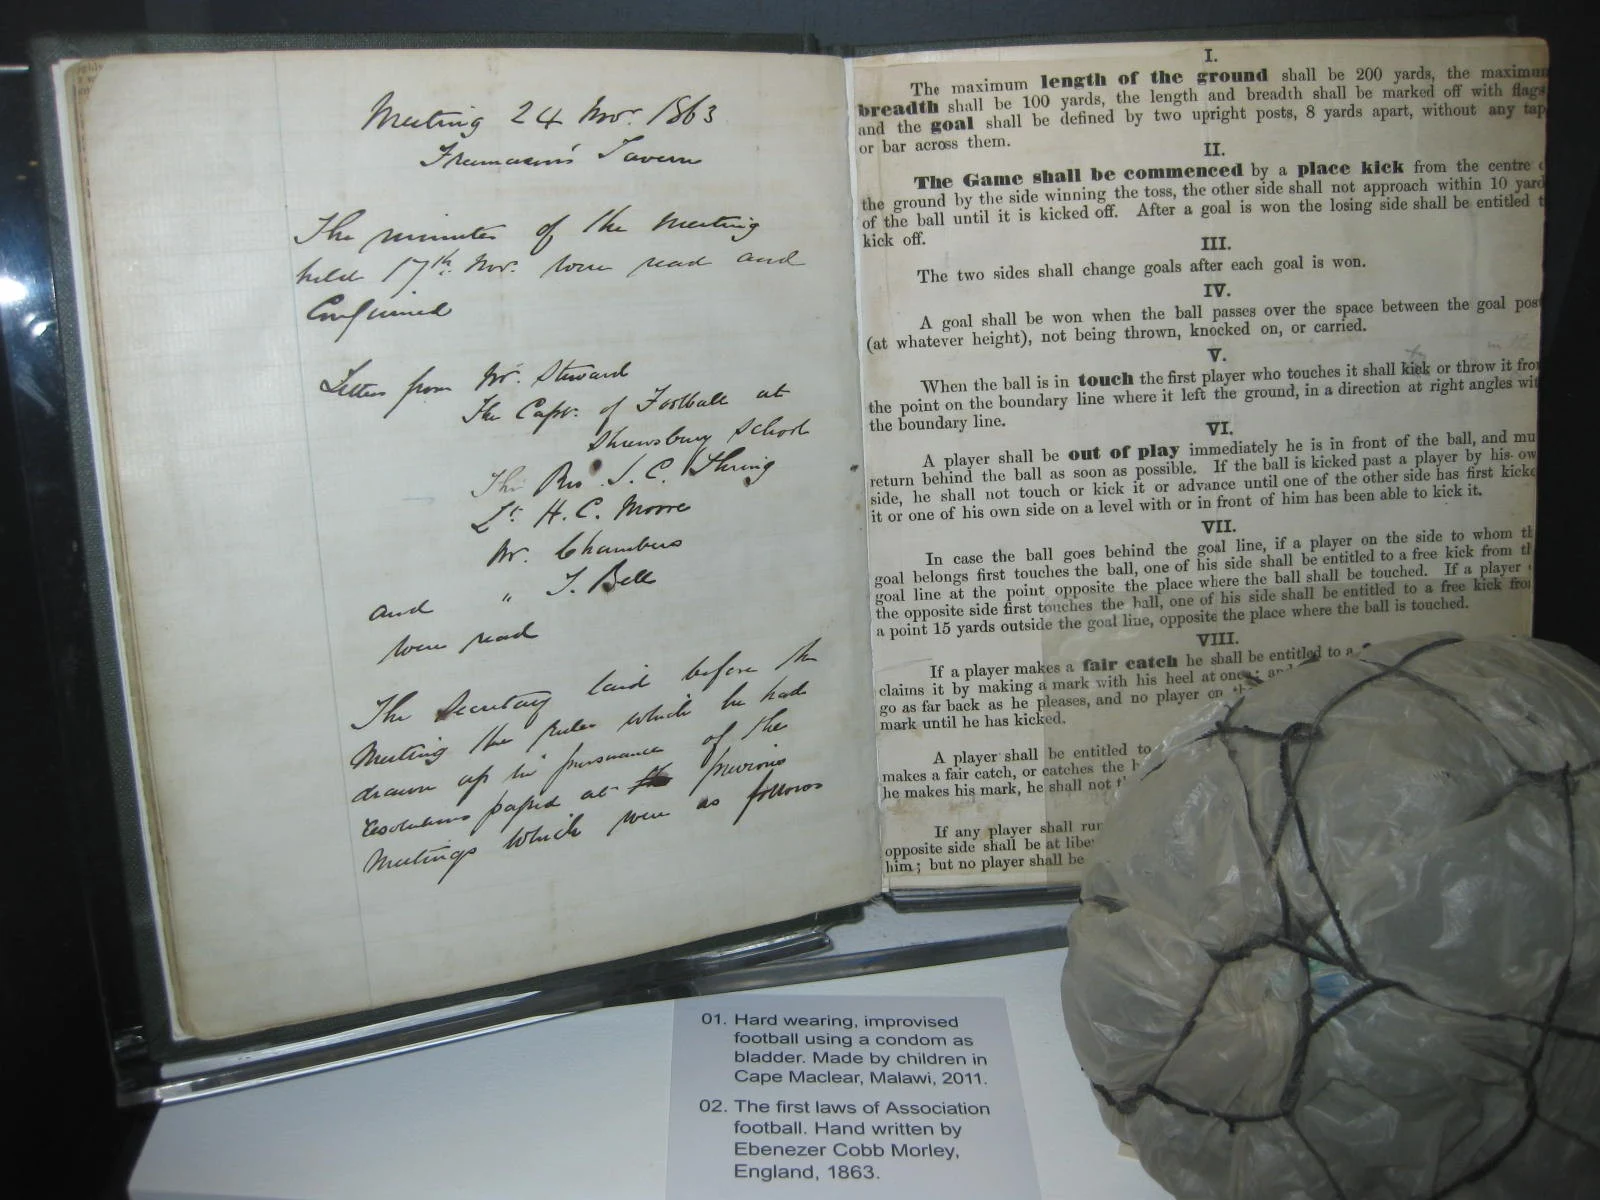 Meeting 24 Novr. 1863
Freemason's Tavern
The minutes of the Meeting
held 17th. Novr. were read and
Confirmed
Letters from Mr. Steward
The Capt. of Football at
Shrewsbury School
The Rev J. C. Thring
Lt. H. C. Moore
Mr. Chambers
and " J. Bell
were read
The Secretary laid before the
Meeting the rules which he had
drawn up in pursuance of the
resolutions passed at previous
Meetings which were as follows
I.
The maximum length of the ground shall be 200 yards, the maximum
breadth shall be 100 yards, the length and breadth shall be marked off with flags
and the goal shall be defined by two upright posts, 8 yards apart, without any tap
or bar across them.
II.
The Game shall be commenced by a place kick from the centre
the ground by the side winning the toss, the other side shall not approach within 10 yard
of the ball until it is kicked off. After a goal is won the losing side shall be entitled t
kick off.
III.
The two sides shall change goals after each goal is won.
IV.
A goal shall be won when the ball passes over the space between the goal post
(at whatever height), not being thrown, knocked on, or carried.
V.
When the ball is in touch the first player who touches it shall kick or throw it from
the point on the boundary line where it left the ground, in a direction at right angles wit
the boundary line.
VI.
A player shall be out of play immediately he is in front of the ball, and mu
return behind the ball as soon as possible. If the ball is kicked past a player by his ow
side, he shall not touch or kick it or advance until one of the other side has first kicke
it or one of his own side on a level with or in front of him has been able to kick it.
VII.
In case the ball goes behind the goal line, if a player on the side to whom th
goal belongs first touches the ball, one of his side shall be entitled to a free kick from th
goal line at the point opposite the place where the ball shall be touched. If a player
the opposite side first touches the ball, one of his side shall be entitled to a free kick from
a point 15 yards outside the goal line, opposite the place where the ball is touched.
VIII.
If a player makes a fair catch he shall be entitled to a
claims it by making a mark with his heel at once; and
go as far back as he pleases, and no player on
mark until he has kicked.
A player shall be entitled to
makes a fair catch, or catches the
he makes his mark, he shall not
If any player shall run
opposite side shall be at libe
him; but no player shall be
01. Hard wearing, improvised
football using a condom as
bladder. Made by children in
Cape Maclear, Malawi, 2011.
02. The first laws of Association
football. Hand written by
Ebenezer Cobb Morley,
England, 1863.